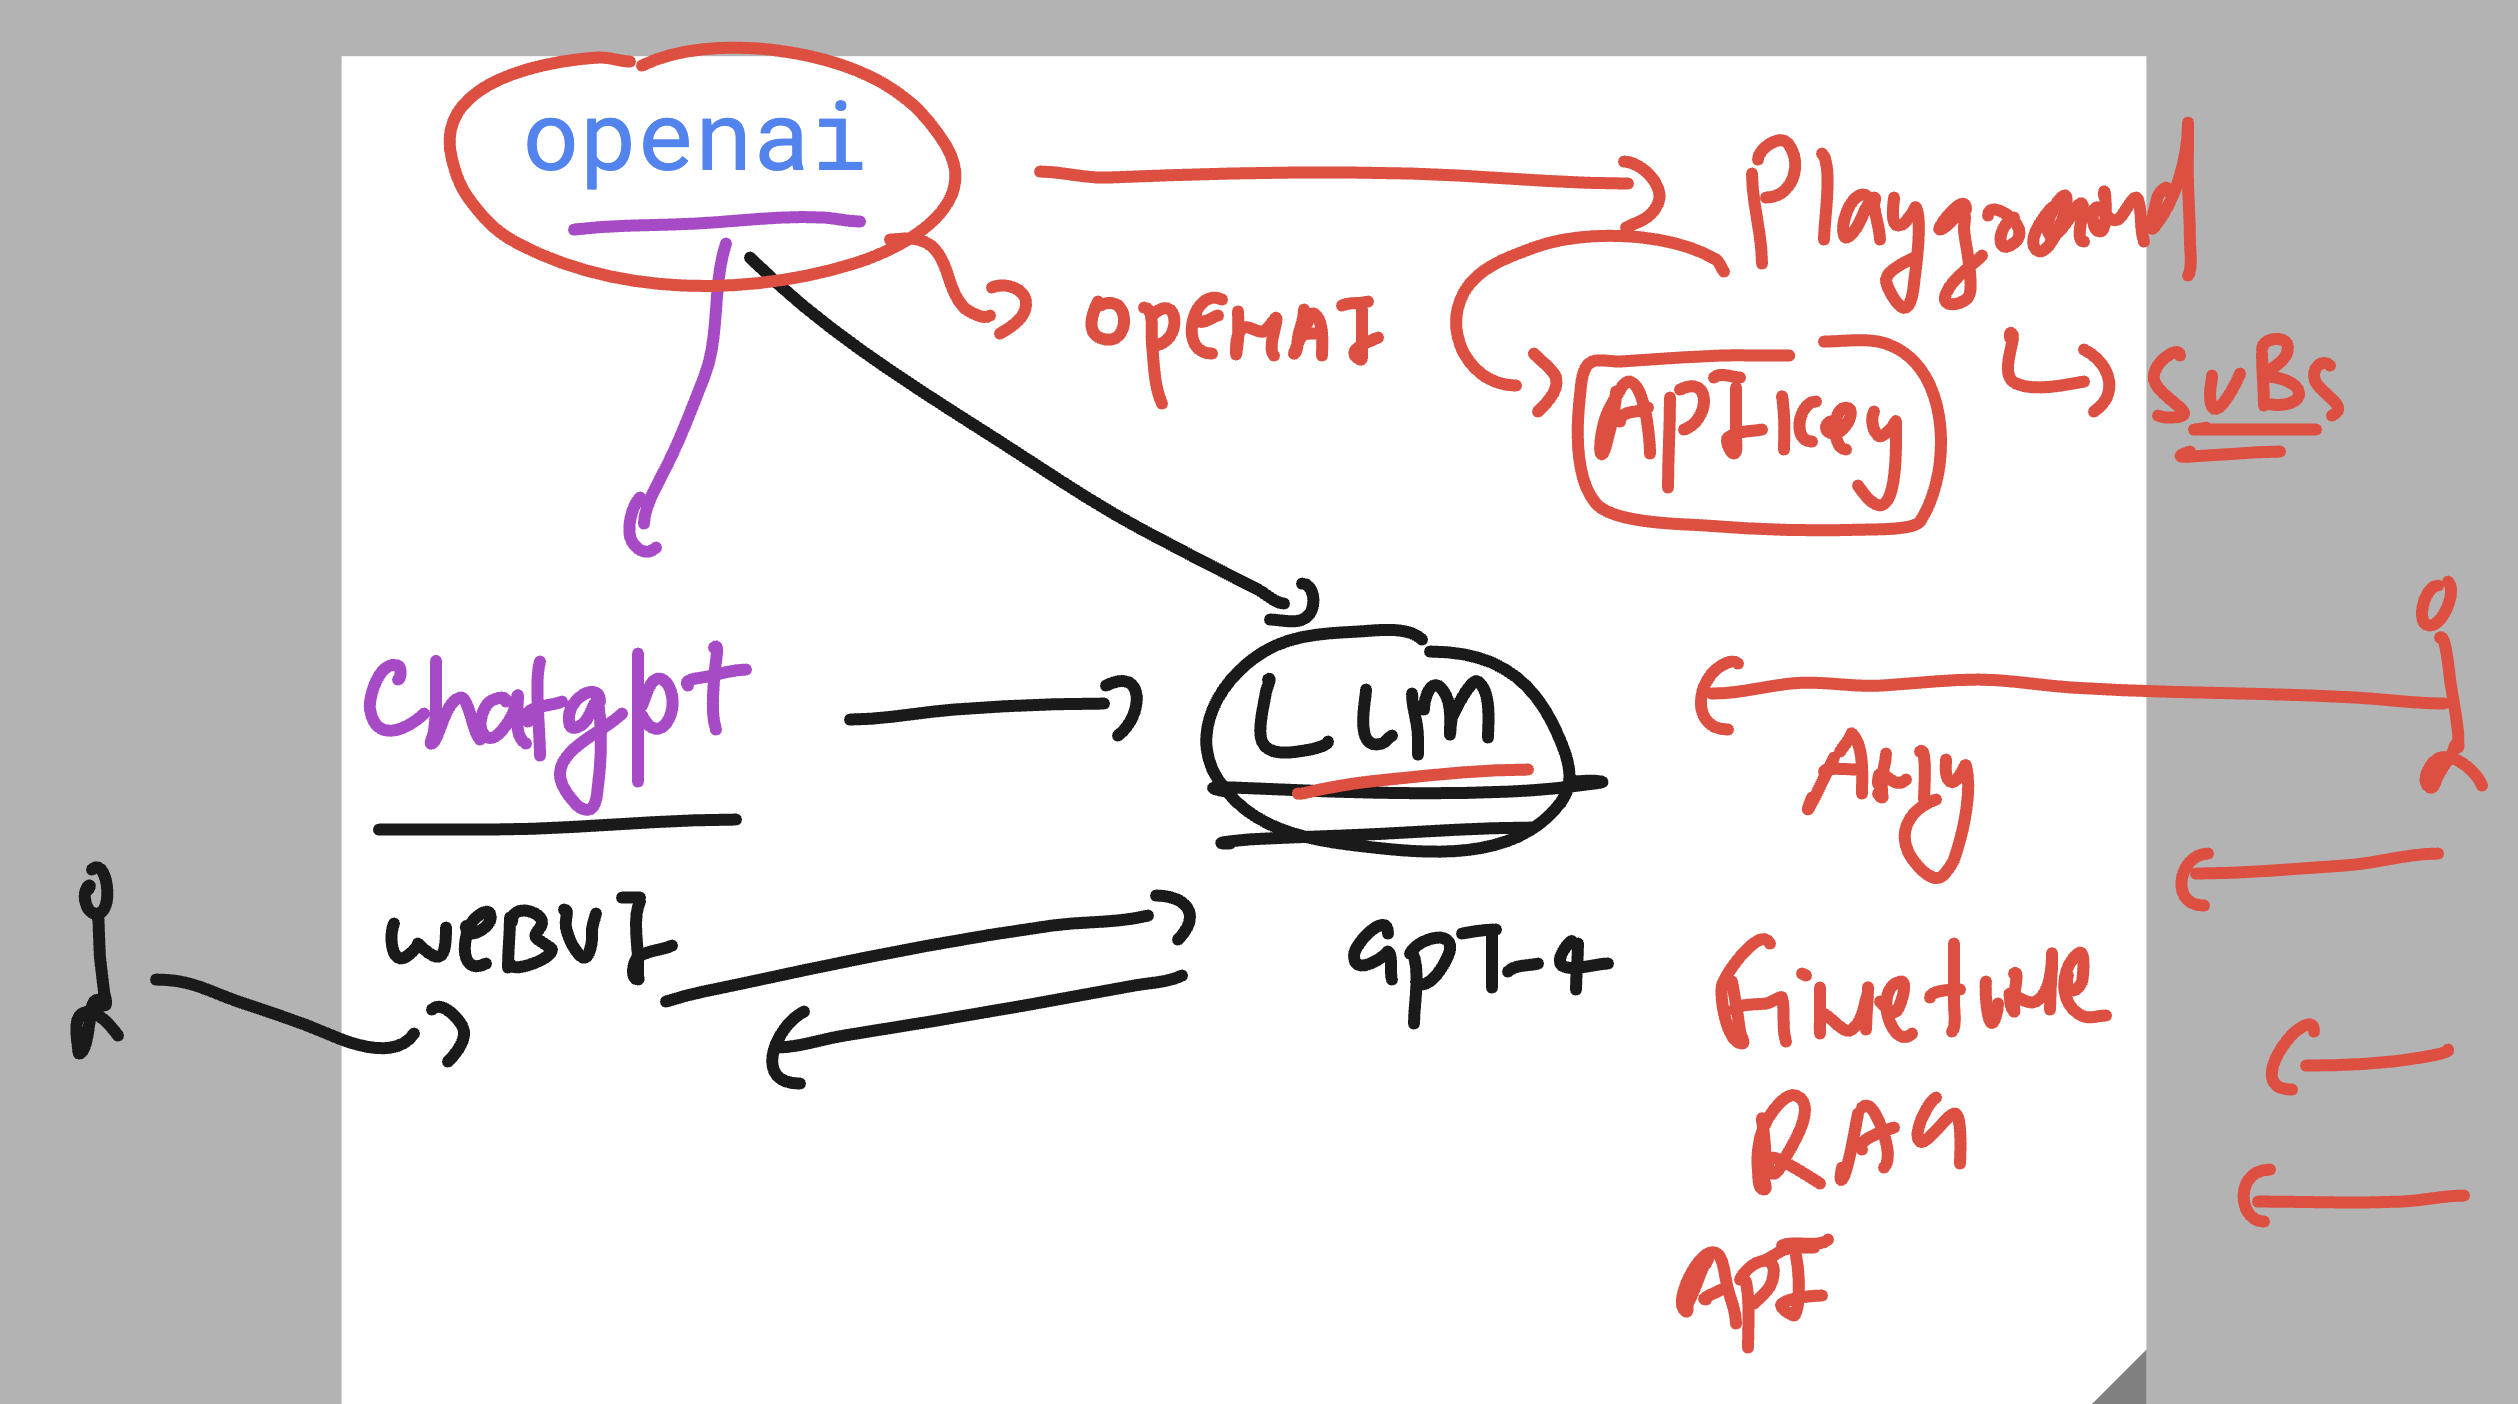 openai
Playground
openAI
APIkey
SUBS
Chatgpt
LLM
Any
WEBUI
GPT-4
Finetune
RAG
API